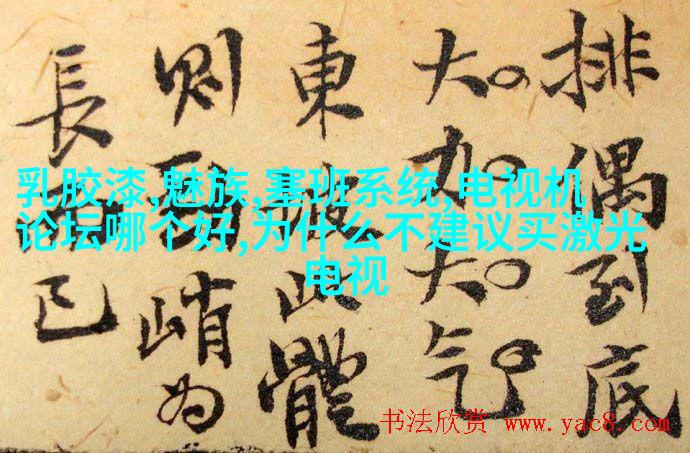 乳胶漆,魅族,塞班系统,电视机
论坛哪个好,为什么不建议买激光
电视
排偶到底
大如大气
東坡此體
则峭为
長已
书法欣赏 www.yac8.com